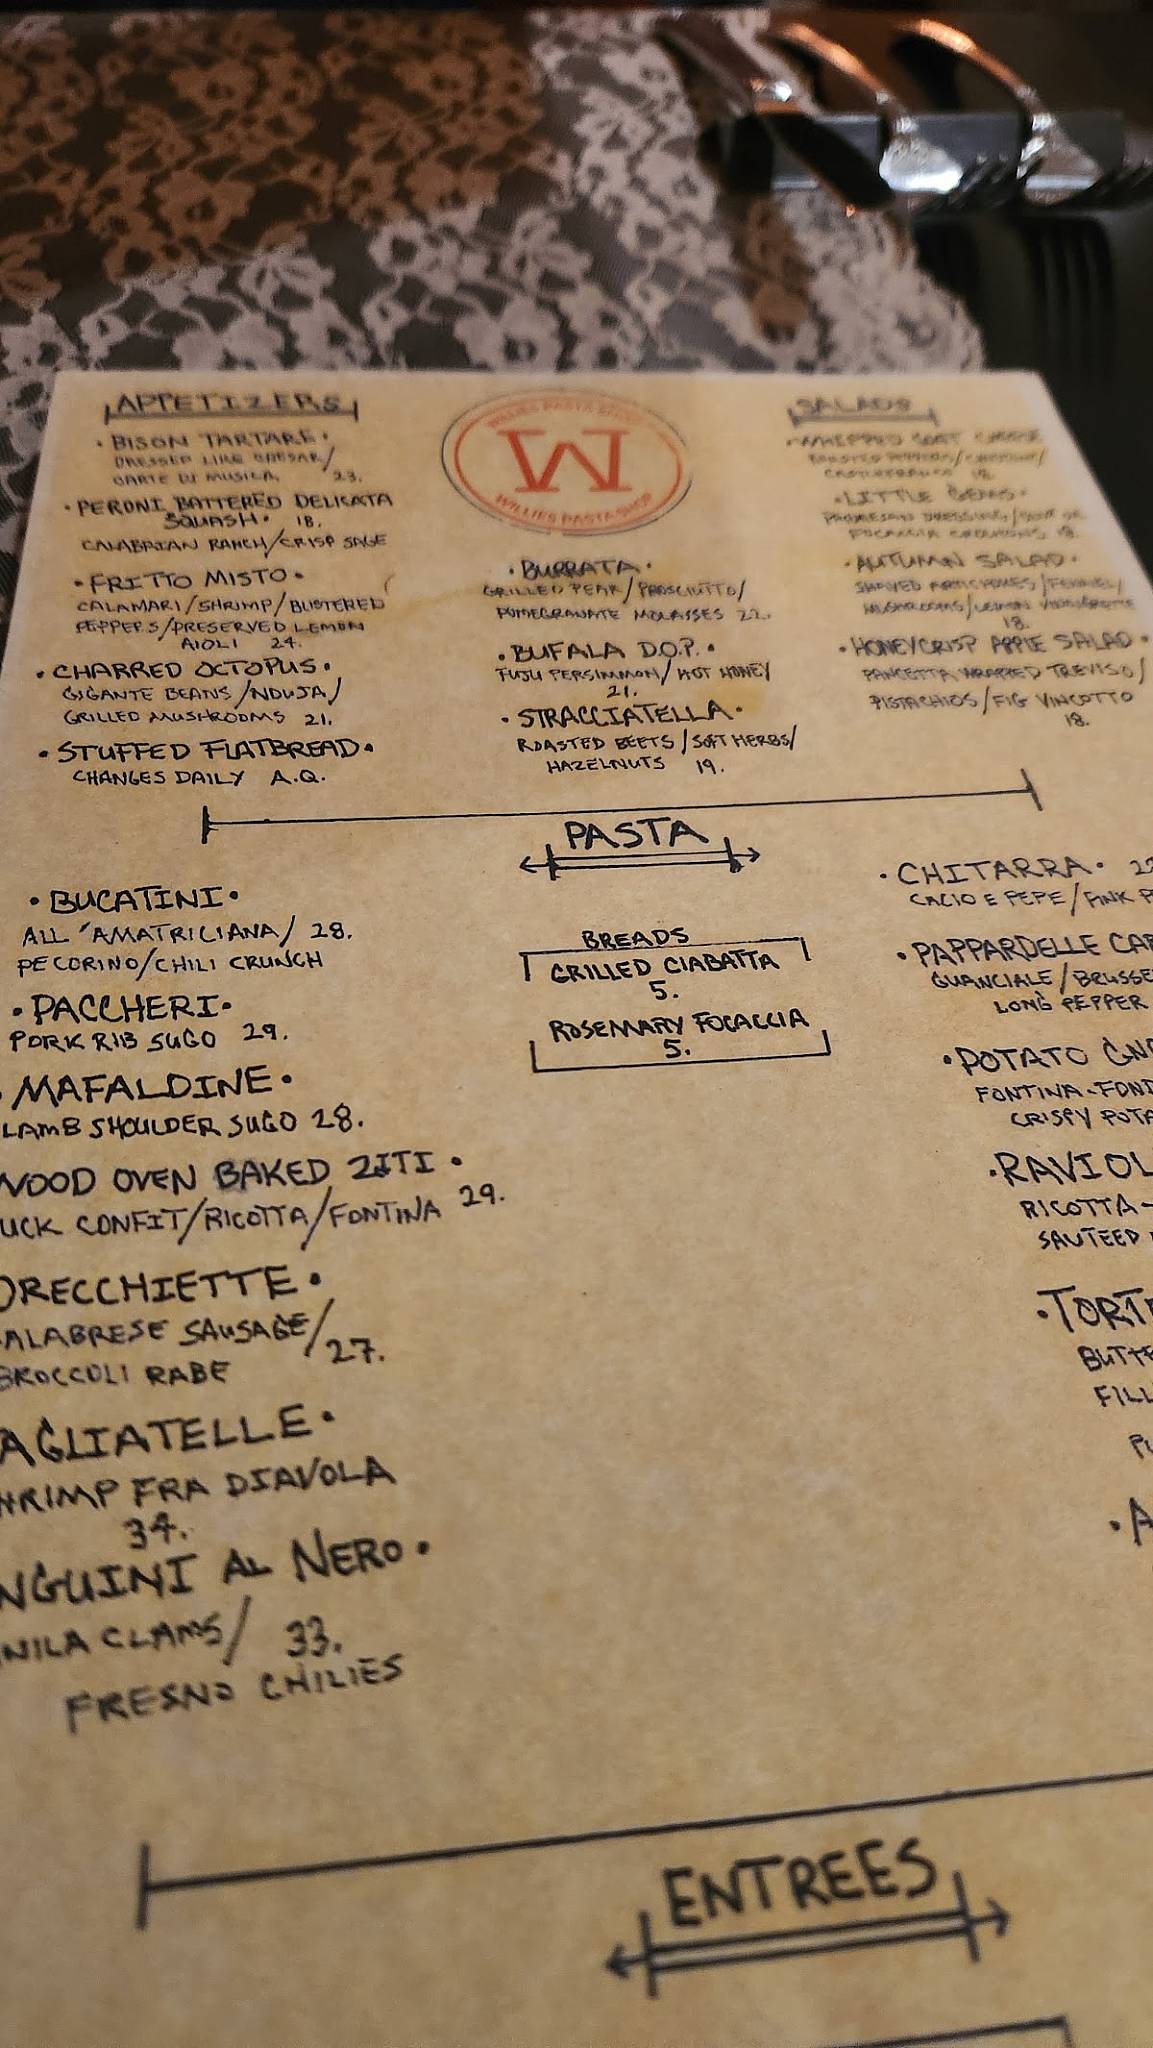 APPETIZERS
• BISON TARTARE •
DRESSED LIKE CAESAR/
CARTE DI MUSICA 23.
• PERONI BATTERED DELICATA
SQUASH • 18.
CALABRIAN RANCH/CRISP SAGE
• FRITTO MISTO •
CALAMARI/SHRIMP/BLISTERED
PEPPERS/PRESERVED LEMON
AIOLI 24.
• CHARRED OCTOPUS •
GIGANTE BEANS/NDUJA/
GRILLED MUSHROOMS 21.
• STUFFED FLATBREAD •
CHANGES DAILY A.Q.
WILLIES PASTA SHOP
W
WILLIES PASTA SHOP
• BURRATA •
GRILLED PEAR/PROSCIUTTO/
POMEGRANATE MOLASSES 22.
• BUFALA D.O.P. •
FUJU PERSIMMON/HOT HONEY
21.
• STRACCIATELLA •
ROASTED BEETS/SOFT HERBS/
HAZELNUTS 19.
SALADS
• WHIPPED GOAT CHEESE
ROASTED PEPPERS/
CASTELFRANCO 18.
• LITTLE GEMS •
PARMESAN DRESSING/
FOCACCIA CROUTONS 18.
• AUTUMN SALAD •
SHAVED ARTICHOKES/FENNEL/
MUSHROOMS/LEMON VINAIGRETTE
18.
• HONEYCRISP APPLE SALAD •
PANCETTA WRAPPED TREVISO/
PISTACHIOS/FIG VINCOTTO
18.
PASTA
• BUCATINI •
ALL 'AMATRICIANA/ 28.
PECORINO/CHILI CRUNCH
• PACCHERI •
PORK RIB SUGO 29.
• MAFALDINE •
LAMB SHOULDER SUGO 28.
WOOD OVEN BAKED ZITI •
UCK CONFIT/RICOTTA/FONTINA 29.
ORECCHIETTE •
ALABRESE SAUSAGE/
27.
BROCCOLI RABE
AGLIATELLE •
HRIMP FRA DIAVOLA
34.
NGUINI AL NERO •
NILA CLAMS/ 33.
FRESNO CHILIES
BREADS
GRILLED CIABATTA
5.
ROSEMARY FOCACCIA
5.
• CHITARRA •
CACIO E PEPE/PINK P
• PAPPARDELLE CAR
GUANCIALE/BRUSSE
LONG PEPPER
• POTATO GN
FONTINA-FOND
CRISPY POTA
• RAVIOL
RICOTTA-
SAUTEED
• TORT
BUTTE
FILL
PU
• A
ENTREES